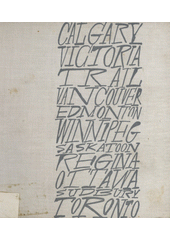 CALGARY
VICTORIA
TRAIL
VANCOUVER
EDMONTON
WINNIPEG
SASKATOON
REGINA
OTTAWA
SUDBURY
TORONTO